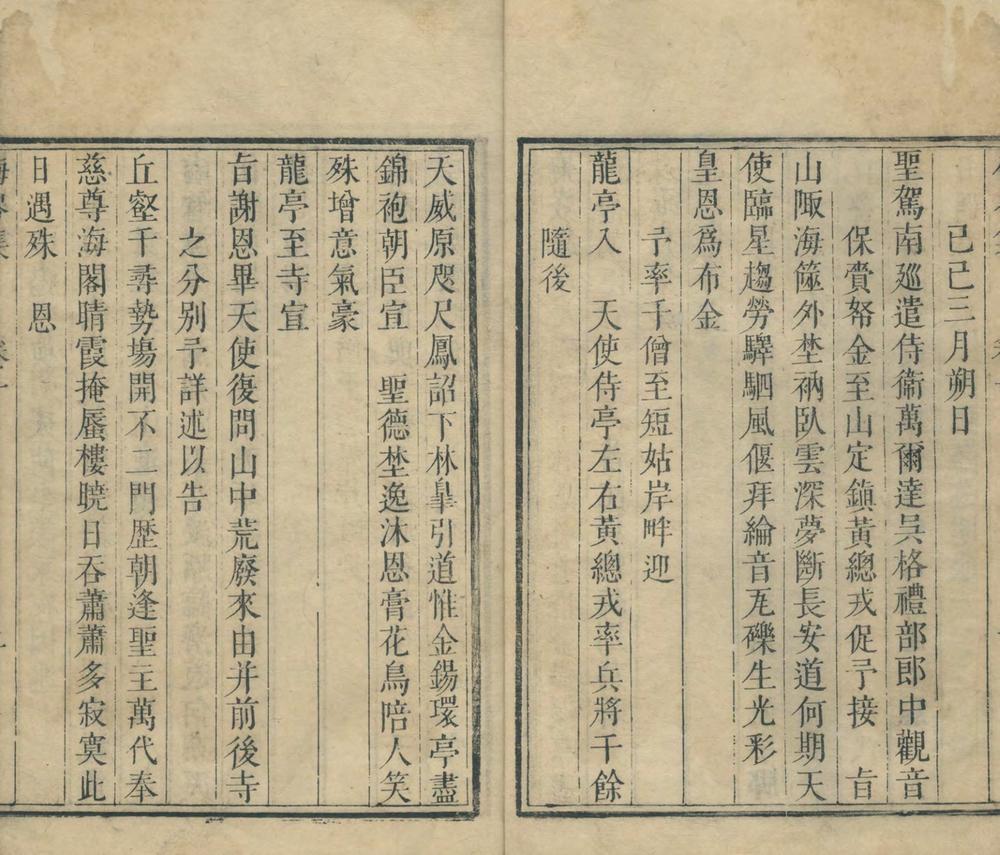 己巳三月朔日
聖駕南廵遣侍衞萬爾達吳格禮部郎中觀音
保賫帑金至山定鎮黃總戎促予接　旨
山陬海筮外埜衲臥雲深夢斷長安道何期天
使臨星趨勞驛駟風偃拜綸音瓦礫生光彩
皇恩爲布金
予率千僧至短姑岸畔迎
龍亭入　天使侍亭左右黃總戎率兵將千餘
隨後
天威原咫尺鳳詔下林臯引道惟金錫環亭盡
錦袍朝臣宣　聖德埜逸沐恩膏花鳥陪人笑
殊增意氣豪
龍亭至寺宣
旨謝恩畢天使復問山中荒廢來由并前後寺
之分別予詳述以告
丘壑千尋勢塲開不二門歷朝逢聖主萬代奉
慈尊海閣晴霞掩蜃樓曉日吞蕭蕭多寂寞此
日遇殊　恩